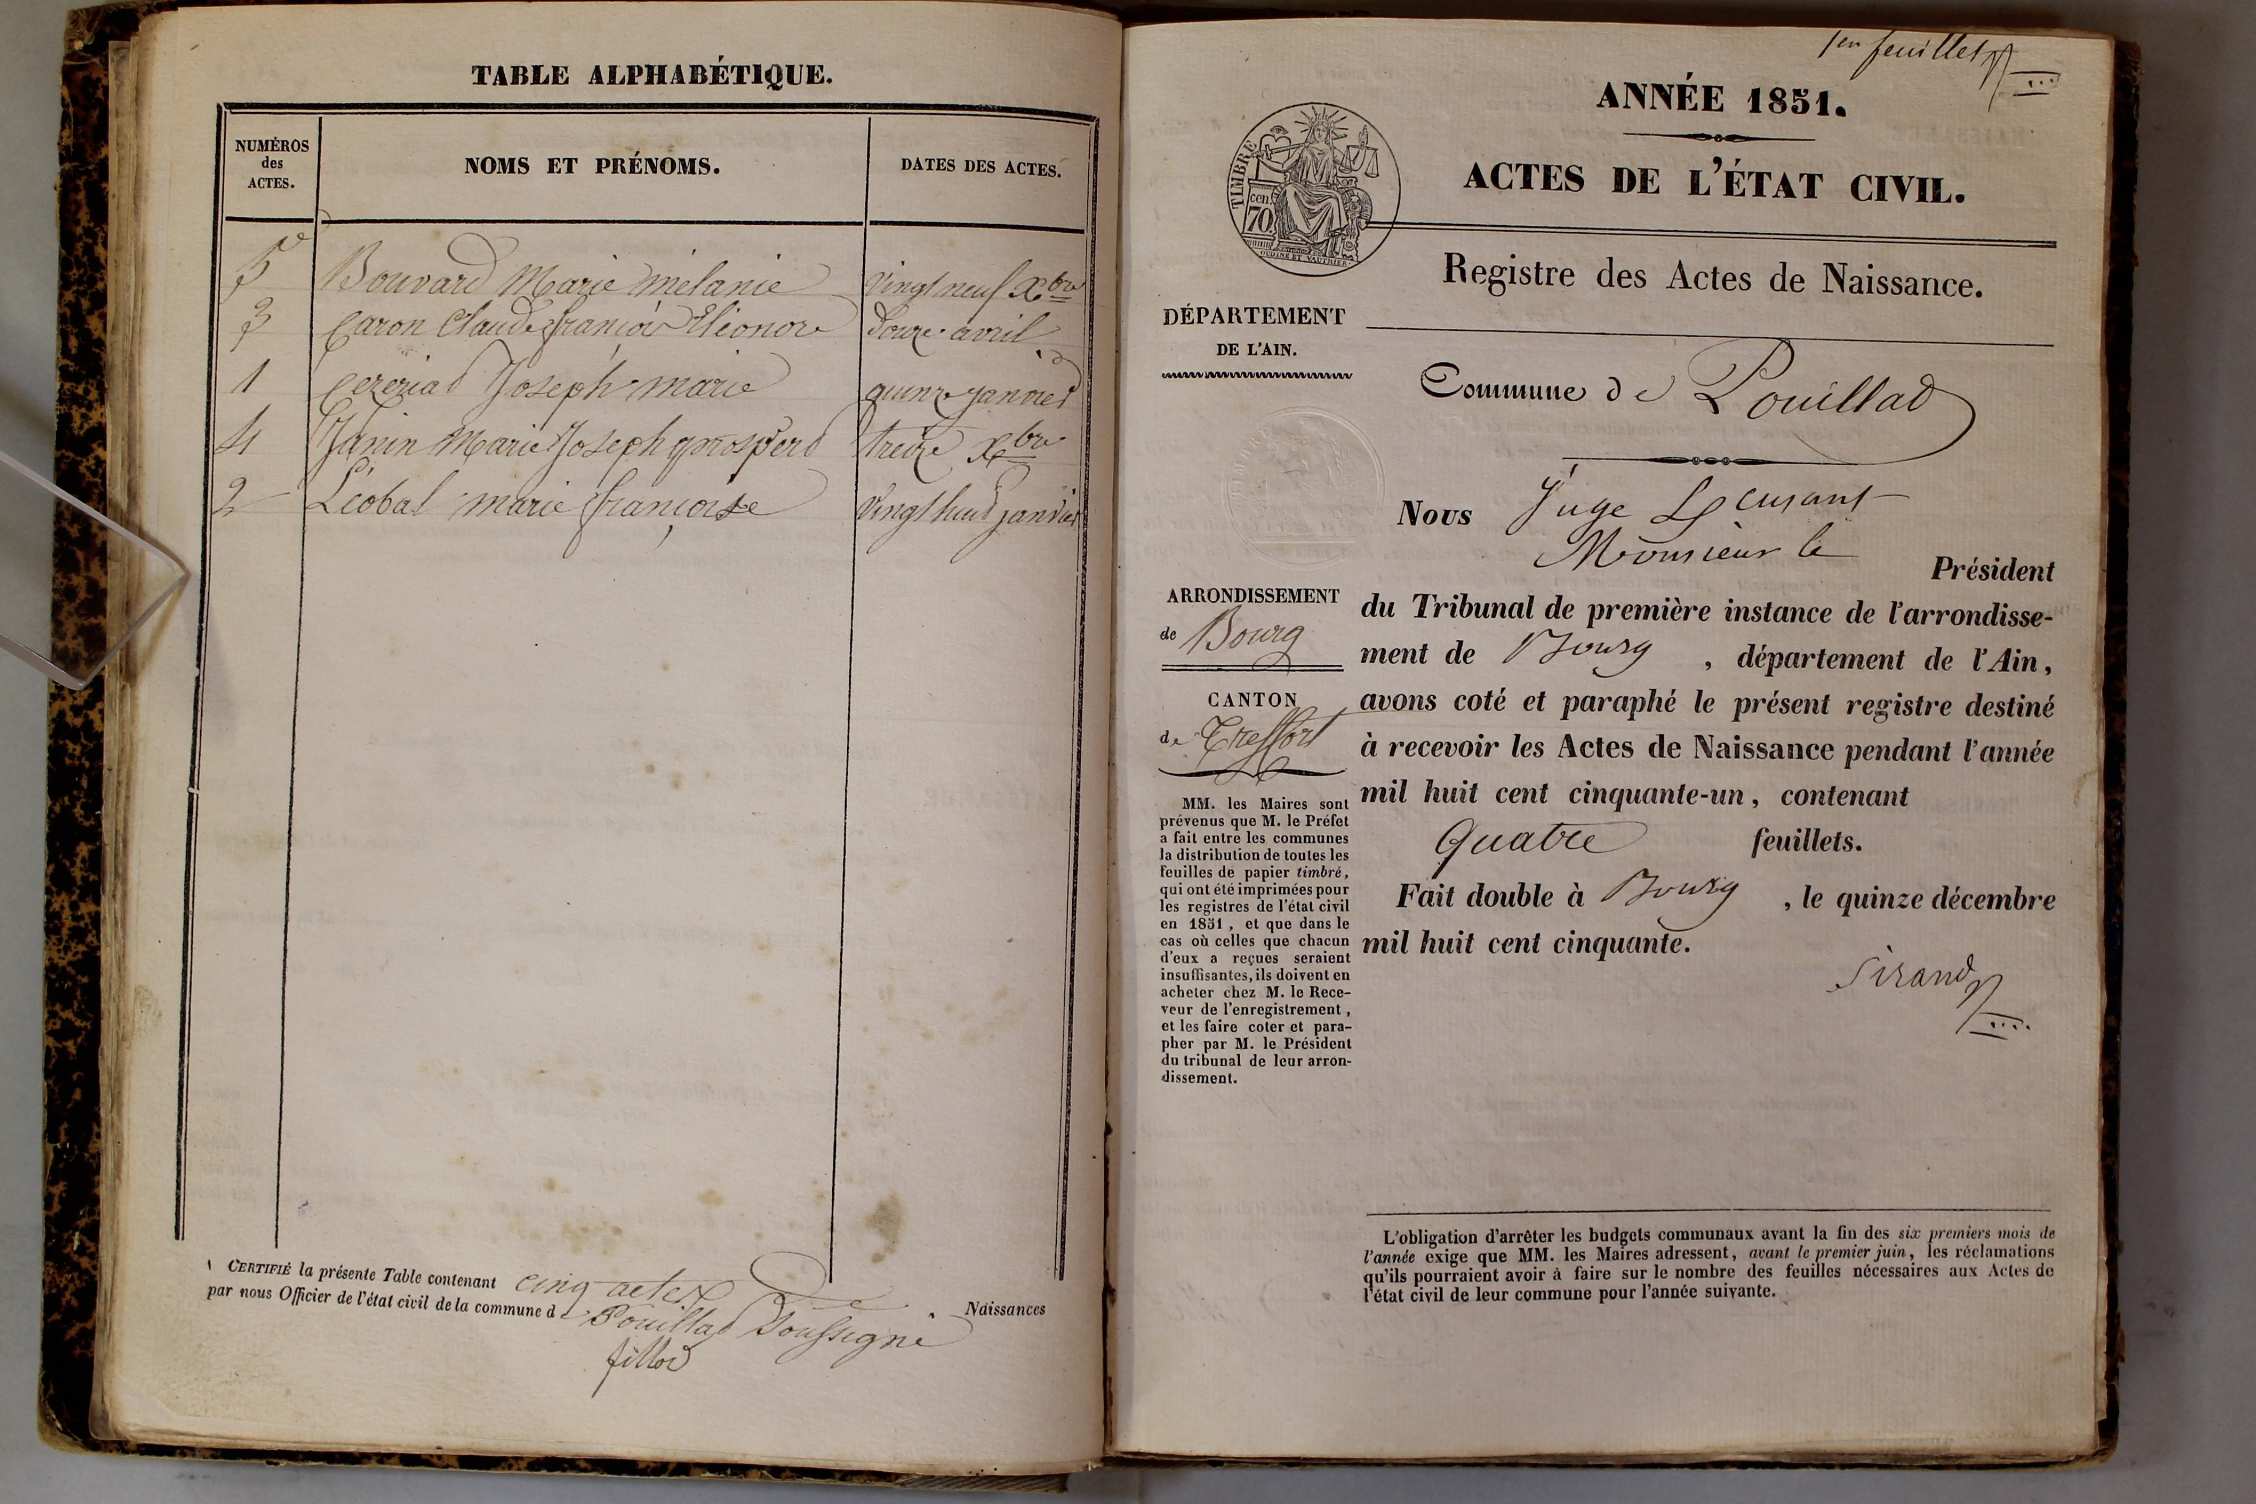 TABLE ALPHABÉTIQUE.
NUMÉROS des ACTES.
NOMS ET PRÉNOMS.
DATES DES ACTES.
5 Bouvard Marie mélanie vingt neuf Xbre
3 Caron Claude françois Eléonore Douze avril
1 Cezeriad Joseph marie quinze janvier
4 Janin Marie Joseph prosperd treize Xbre
2 Léobal marie françoise vingt huit janvier
CERTIFIÉ la présente Table contenant cinq actes De Naissances
par nous Officier de l'état civil de la commune de Pouillad Soussigné
fillod
1er feuillet
ANNÉE 1851.
ACTES DE L'ÉTAT CIVIL.
TIMBRE
cen.
70
OUDINÉ ET VAUTHIER
Registre des Actes de Naissance.
DÉPARTEMENT
DE L'AIN.
Commune de Pouillad
Nous Juge
Monsieur le
Président
ARRONDISSEMENT
de Bourg
CANTON
de Treffort
du Tribunal de première instance de l'arrondisse-
ment de Bourg , département de l'Ain,
avons coté et paraphé le présent registre destiné
à recevoir les Actes de Naissance pendant l'année
mil huit cent cinquante-un, contenant
Quatre feuillets.
Fait double à Bourg , le quinze décembre
mil huit cent cinquante.
Sirand
MM. les Maires sont
prévenus que M. le Préfet
a fait entre les communes
la distribution de toutes les
feuilles de papier timbré,
qui ont été imprimées pour
les registres de l'état civil
en 1851, et que dans le
cas où celles que chacun
d'eux a reçues seraient
insuffisantes, ils doivent en
acheter chez M. le Rece-
veur de l'enregistrement,
et les faire coter et para-
pher par M. le Président
du tribunal de leur arron-
dissement.
L'obligation d'arrêter les budgets communaux avant la fin des six premiers mois de
l'année exige que MM. les Maires adressent, avant le premier juin, les réclamations
qu'ils pourraient avoir à faire sur le nombre des feuilles nécessaires aux Actes de
l'état civil de leur commune pour l'année suivante.